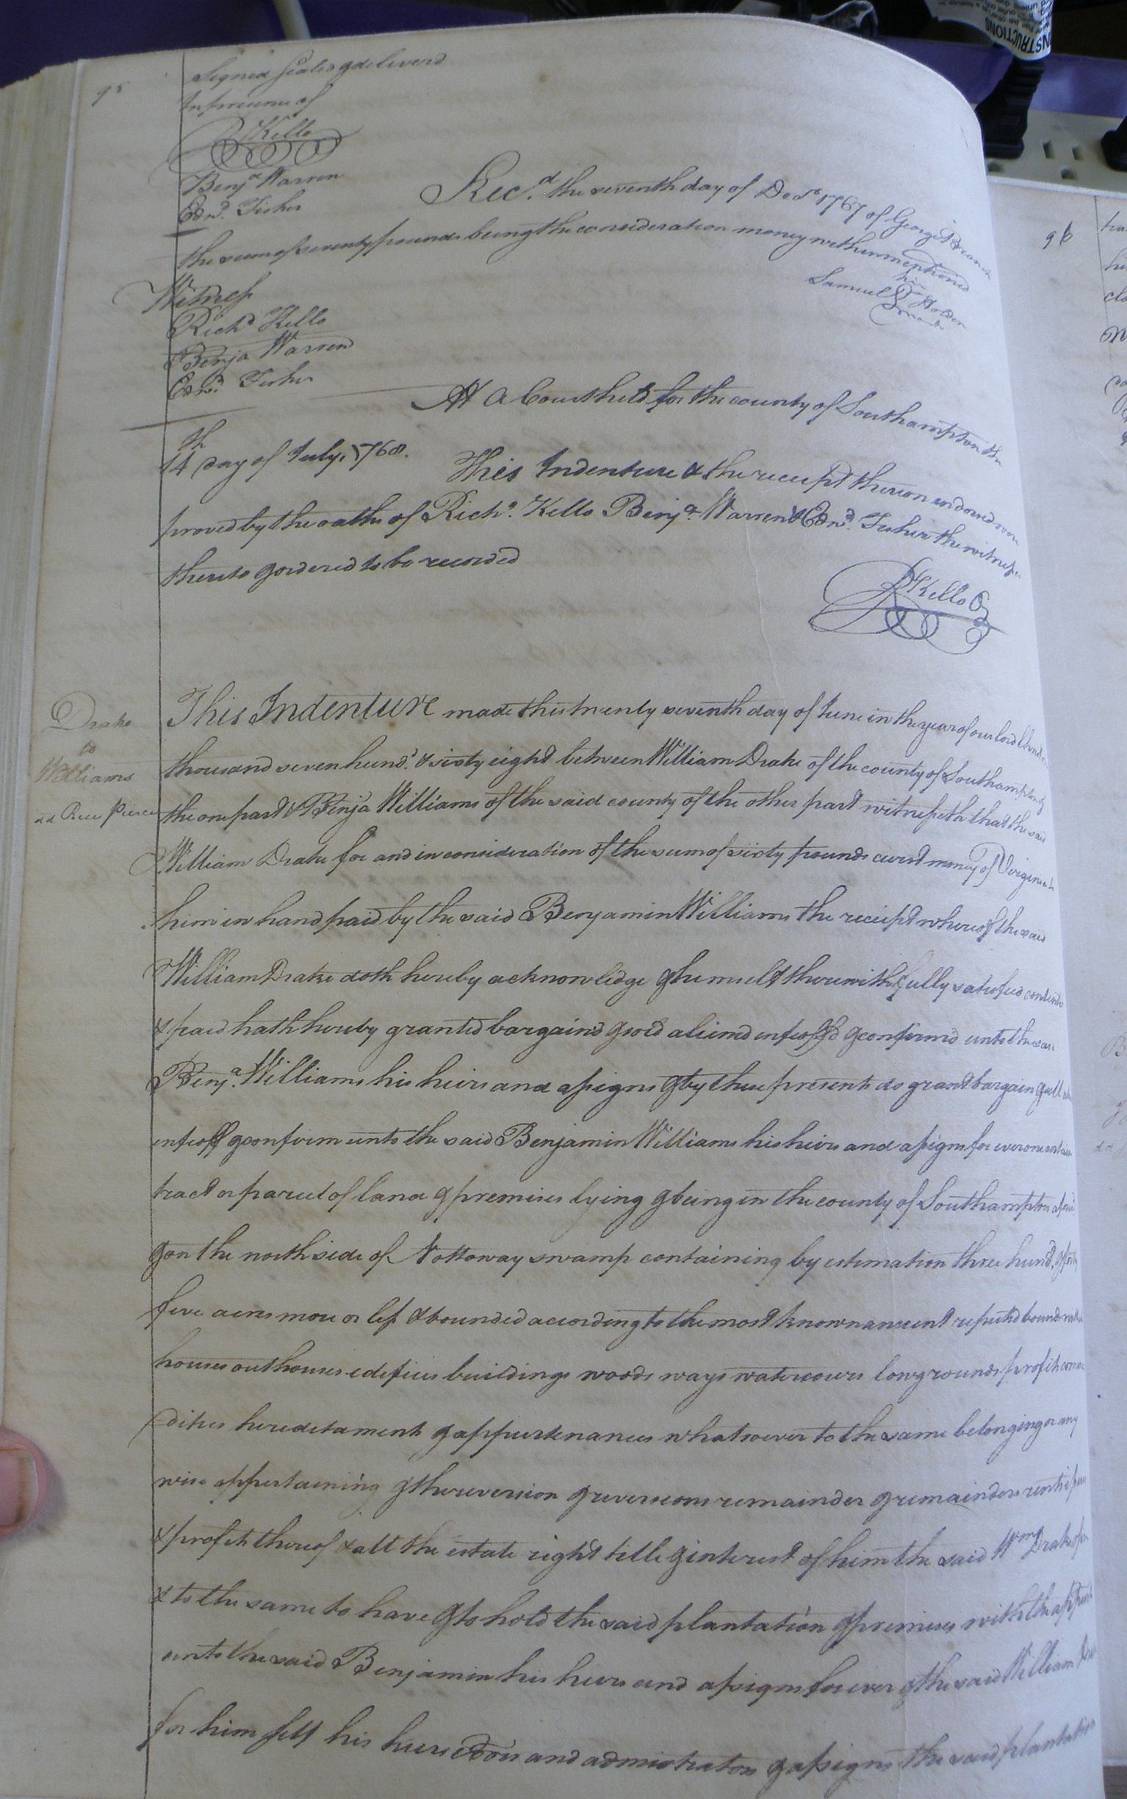 95
Signed Sealed & deliverd
In presence of
R Kello
Benja Warren
Edwd. Fisher
Recd. the seventh day of Decr 1767 of George Branch
the sum of seventy pounds being the consideration money within mentiond
his
Samuel Holden
mark
Witness
Richd Kello
Benja Warren
Edwd. Fisher
At a Court held for the county of Southampton the
14th day of July. 1768.
This Indenture & the receipt thereon endorsed were
proved by the oaths of Richd. Kello Benja. Warren & Edwd. Fisher the witnesses
thereto & ordered to be recorded
R Kello
Drake
to
Williams
This Indenture made this twenty seventh day of June in the year of our lord
thousand seven hund. & sixty eight between William Drake of the county of Southampton of
the one part & Benja Williams of the said county of the other part witnesseth that the said
William Drake for and in consideration of the sum of sixty pounds curent money of Virginia to
him in hand paid by the said Benjamin Williams the reciept whereof the said
William Drake doth hereby acknowledge & himself therewith fully satisfied contented
& paid hath hereby granted bargaind & sold aliened enfeoffd & confirmd unto the said
Benja. Williams his heirs and assigns & by these presents do grant bargain & sell
enfeoff & confirm unto the said Benjamin Williams his heirs and assigns for ever one certain
tract or parcel of land & premises lying & being in the county of Southampton
& on the north side of Nottoway swamp containing by estimation three hund. & forty
five acres more or less & bounded according to the most known ancient reputed bounds with
houses outhouses edifices buildings woods ways watercourses low grounds profit
dities hereditament & appurtenances whatsoever to the same belonging or any
wise appertaining & the reversion & reversions remainder & remainders rents
& profits thereof & all the estate right title & interest of him the said Wm. Drake of in
& to the same to have & to hold the said plantation & premises with the
unto the said Benjamin his heirs and assigns for ever & the said William
for him self his heirs Exors and admistrators & assigns the said plantation
96